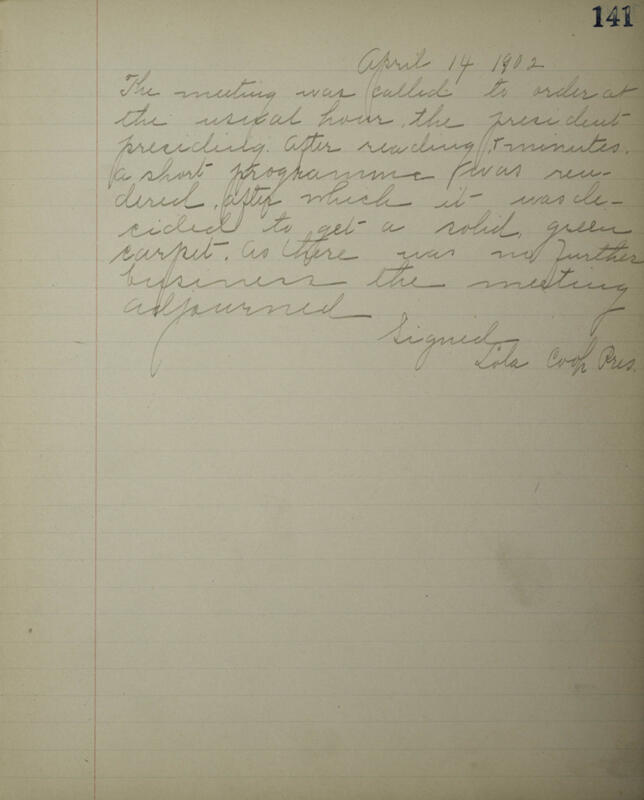 141
April 14 1902
The meeting was called to order at
the usual hour, the president
presiding. After reading, + minutes.
a short programme was ren-
dered, after which it was de-
cided to get a solid, green
carpet. As there was no further
business the meeting
adjourned
Signed
Lola Cook Pres.